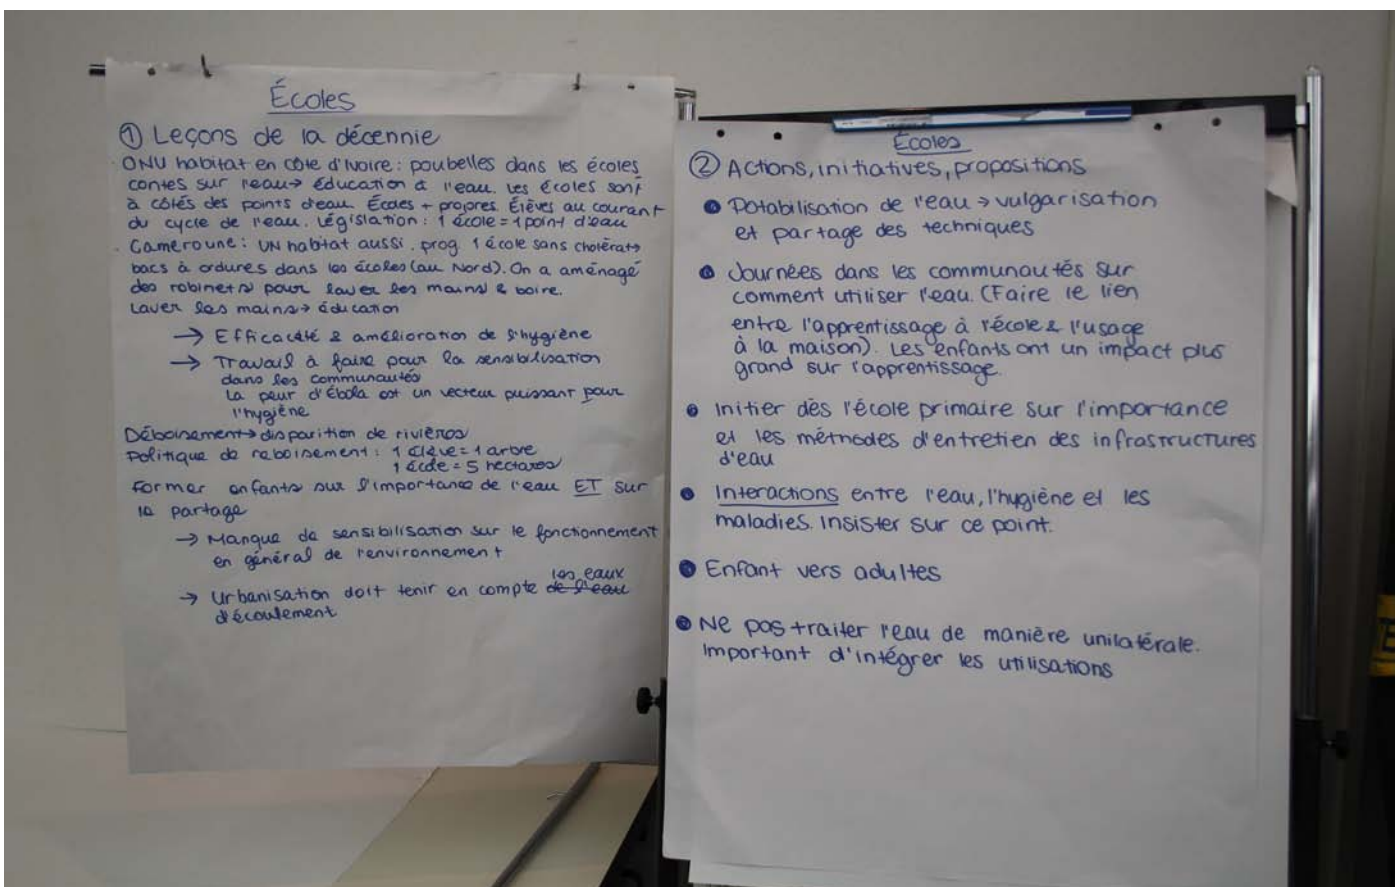 Écoles
① Leçons de la décennie
. ONU habitat en côte d'Ivoire : poubelles dans les écoles
contes sur l'eau → éducation à l'eau. Les écoles sont
à côtés des points d'eau. Écoles + propres. Élèves au courant
du cycle de l'eau. Législation : 1 école = 1 point d'eau
. Cameroune : UN habitat aussi. prog. 1 école sans choléra →
bacs à ordures dans les écoles (au Nord). On a aménagé
des robinets pour laver les mains & boire.
Laver les mains → éducation
→ Efficacité & amélioration de l'hygiène
→ Travail à faire pour la sensibilisation
dans les communautés
La peur d'Ébola est un vecteur puissant pour
l'hygiène
Déboisement → disparition de rivières
Politique de reboisement : 1 élève = 1 arbre
1 école = 5 hectares
Former enfants sur l'importance de l'eau ET sur
le partage
→ Manque de sensibilisation sur le fonctionnement
en général de l'environnement
les eaux
→ Urbanisation doit tenir en compte de l'eau
d'écoulement
Écoles
② Actions, initiatives, propositions
• Potabilisation de l'eau → vulgarisation
et partage des techniques
• Journées dans les communautés sur
comment utiliser l'eau. (Faire le lien
entre l'apprentissage à l'école & l'usage
à la maison). Les enfants ont un impact plus
grand sur l'apprentissage.
• Initier dès l'école primaire sur l'importance
et les méthodes d'entretien des infrastructures
d'eau
• Interactions entre l'eau, l'hygiène et les
maladies. Insister sur ce point.
• Enfant vers adultes
• Ne pas traiter l'eau de manière unilatérale.
Important d'intégrer les utilisations